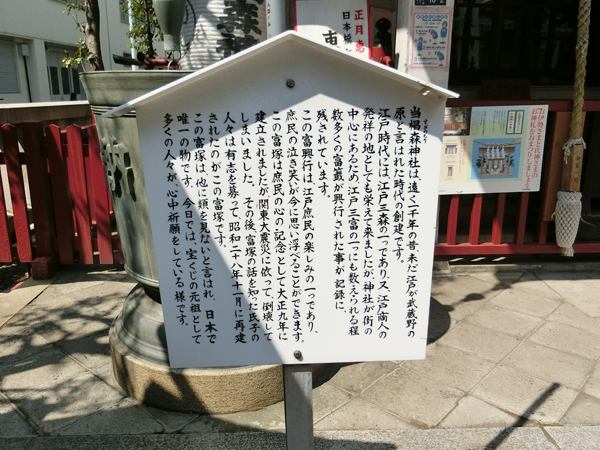 当椙森神社は遠く一千年の昔、未だ江戸が武蔵野の
すぎのもり
原と言はれた時代の創建です。
江戸時代には、江戸三森の一つであり、又、江戸商人の
発祥の地としても栄えて来ましたが、神社が街の
中心にあるため、江戸三富の一にも数えられる程
数多くの富籤が興行された事が記録に
残されています。
この富興行は、江戸庶民の楽しみの一つであり、
庶民の泣き笑いが今に思い浮べることができます。
この富塚は庶民の心の記念として大正九年に
建立されましたが、関東大震災に依って、倒壊して
しまいました。その後、富塚の話を知った氏子の
人々は有志を募って、昭和二十八年十一月に再建
されたのがこの富塚です。
この富塚は、他に類を見ないと言はれ、日本で
唯一の物です。今日では、宝くじの元祖として
多くの人々が、心中祈願をしている様です。
正月恵
日本橋